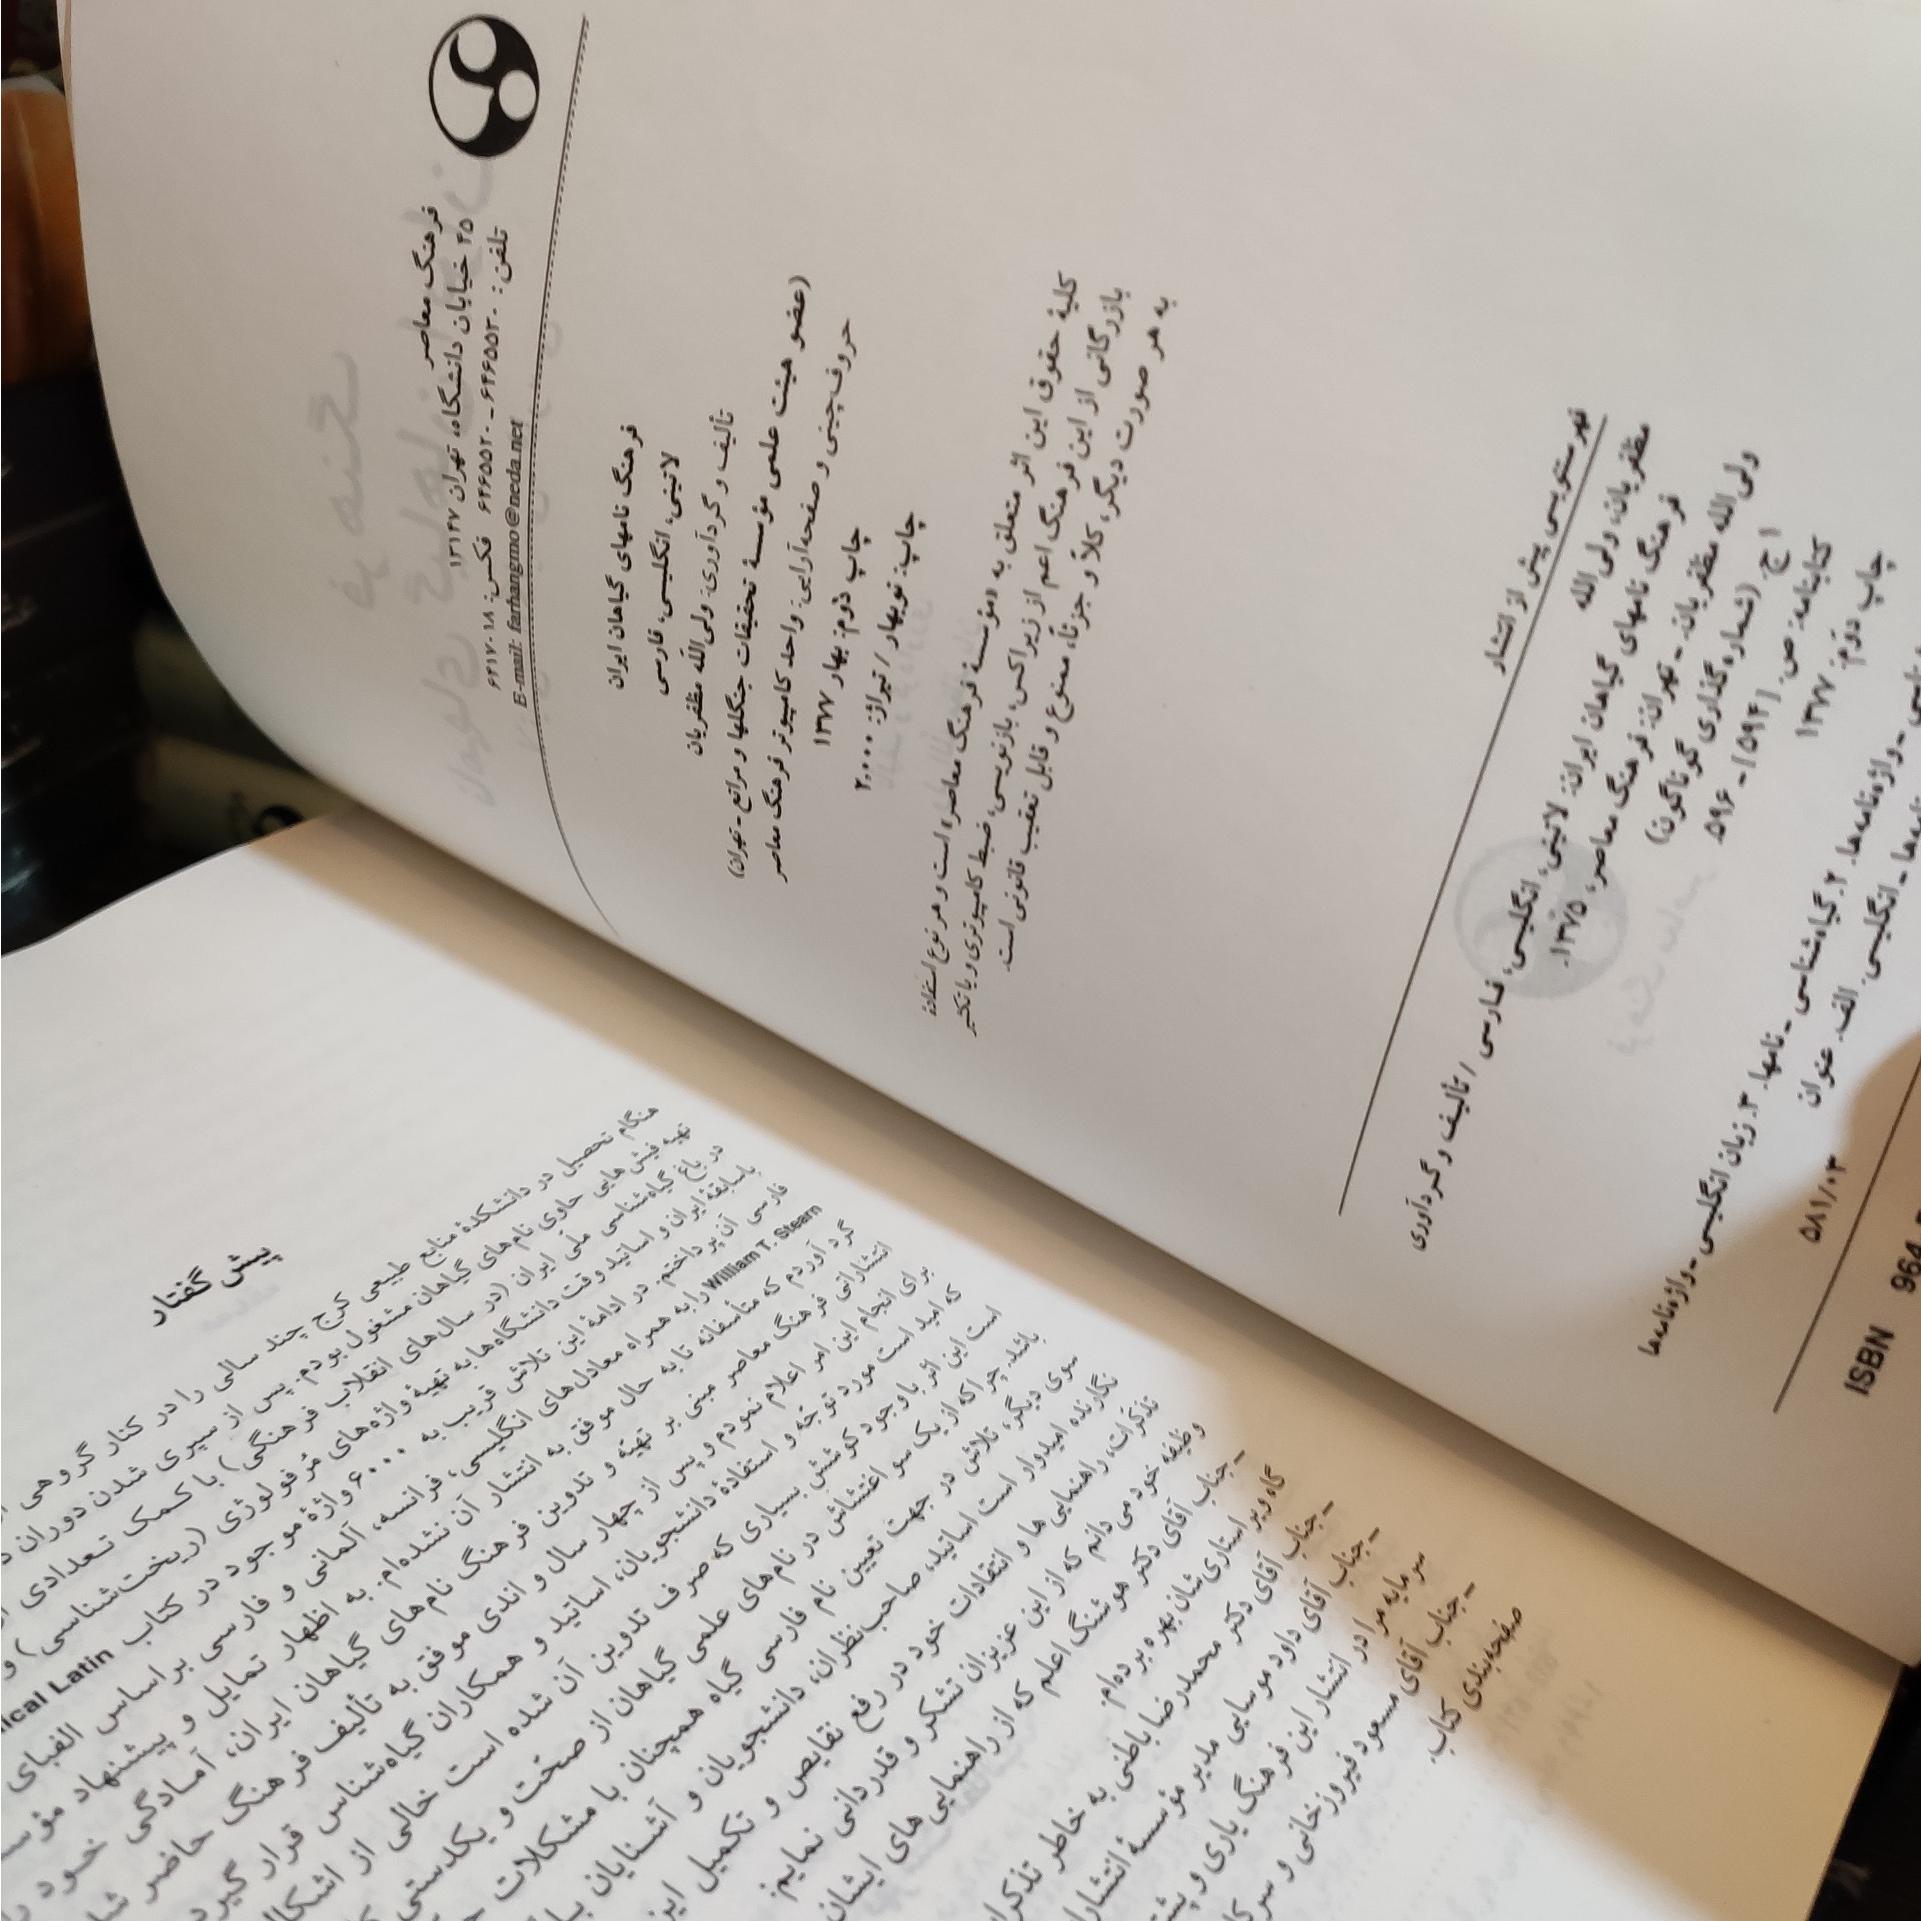 فرهنگ معاصر
۴۵ خیابان دانشگاه، تهران ۱۳۱۴۷
تلفن: ۶۴۶۵۵۳۰ - ۶۴۶۵۵۲۰ فکس: ۶۴۱۷۰۱۸
E-mail: farhangmo@neda.net
فرهنگ نامهای گیاهان ایران
لاتینی، انگلیسی، فارسی
تألیف و گردآوری: ولی‌اللّه مظفریان
(عضو هیئت علمی مؤسسهٔ تحقیقات جنگلها و مراتع - تهران)
حروف‌چینی و صفحه‌آرایی: واحد کامپیوتر فرهنگ معاصر
چاپ دوّم: بهار ۱۳۷۷
چاپ: نوبهار / تیراژ: ۲۰۰۰۰
کلیهٔ حقوق این اثر متعلق به «مؤسسهٔ فرهنگ معاصر» است و هر نوع استفادهٔ
بازرگانی از این فرهنگ اعم از زیراکس، بازنویسی، ضبط کامپیوتری و یا تکثیر
به هر صورت دیگر، کلاً و جزئاً، ممنوع و قابل تعقیب قانونی است.
فهرستنویسی پیش از انتشار
مظفریان، ولی الله
فرهنگ نامهای گیاهان ایران: لاتینی، انگلیسی، فارسی / تألیف و گردآوری
ولی الله مظفریان. - تهران: فرهنگ معاصر، ۱۳۷۵.
۱ ج. (شماره گذاری گوناگون)
کتابنامه: ص. [۵۹۴] - ۵۹۶.
چاپ دوّم: ۱۳۷۷
- واژه‌نامه‌ها. ۲. گیاه‌شناسی - نامها. ۳. زبان انگلیسی - واژه‌نامه‌ها
- انگلیسی. الف. عنوان
۵۸۱/۰۳
ISBN 964
پیش گفتار
هنگام تحصیل در دانشکدهٔ منابع طبیعی کرج چند سالی را در کنار گروهی
تهیه فیش‌هایی حاوی نام‌های گیاهان مشغول بودم. پس از سپری شدن دوران
در باغ گیاه‌شناسی ملّی ایران (در سال‌های انقلاب فرهنگی) با کمک تعدادی
باسابقهٔ ایران و اساتید وقت دانشگاه‌ها به تهیهٔ واژه‌های مُرفولوژی (ریخت‌شناسی) و
فارسی آن پرداختم. در ادامهٔ این تلاش قریب به ۶۰۰۰ واژهٔ موجود در کتاب Latin
William T. Stearn را به همراه معادل‌های انگلیسی، فرانسه، آلمانی و فارسی براساس الفبای
گرد آوردم که متأسفانه تا به حال موفق به انتشار آن نشده‌ام. به اظهار تمایل و پیشنهاد
انتشاراتی فرهنگ معاصر مبنی بر تهیّه و تدوین فرهنگ نام‌های گیاهان ایران، آمادگی خود
برای انجام این امر اعلام نمودم و پس از چهار سال و اندی موفق به تألیف فرهنگ حاضر
که امید است مورد توجّه و استفادهٔ دانشجویان، اساتید و همکاران گیاه‌شناس قرار گیرد
است این اثر با وجود کوشش بسیاری که صرف تدوین آن شده است خالی از
باشد. چرا که از یک سو اغتشاش در نام‌های علمی گیاهان از صحّت و یکدستی
سوی دیگر، تلاش در جهت تعیین نام فارسی گیاه همچنان با مشکلات
نگارنده امیدوار است اساتید، صاحب‌نظران، دانشجویان و آشنایان
تذکّرات، راهنمایی‌ها و انتقادات خود در رفع نقایص و تکمیل
وظیفه خود می دانم که از این عزیزان تشکر و قدردانی نمایم:
- جناب آقای دکتر هوشنگ اعلم که از راهنمایی های ایشان
گاه ویراستاری‌شان بهره برده‌ام.
- جناب آقای دکتر محمدرضا باطنی به خاطر
- جناب آقای داود موسایی مدیر مؤسسهٔ
سرمایه مرا در انتشار این فرهنگ یاری و
- جناب آقای مسعود فیروزخانی و
صفحه‌بندی کتاب.